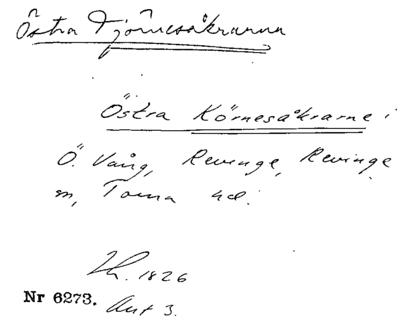 Östra Tjörnesåkrarna
Östra Körnesåkrarne i
Ö. Vång, Revinge, Revinge
m, Torna hd.
1826
Nr 6273. Akt 3.